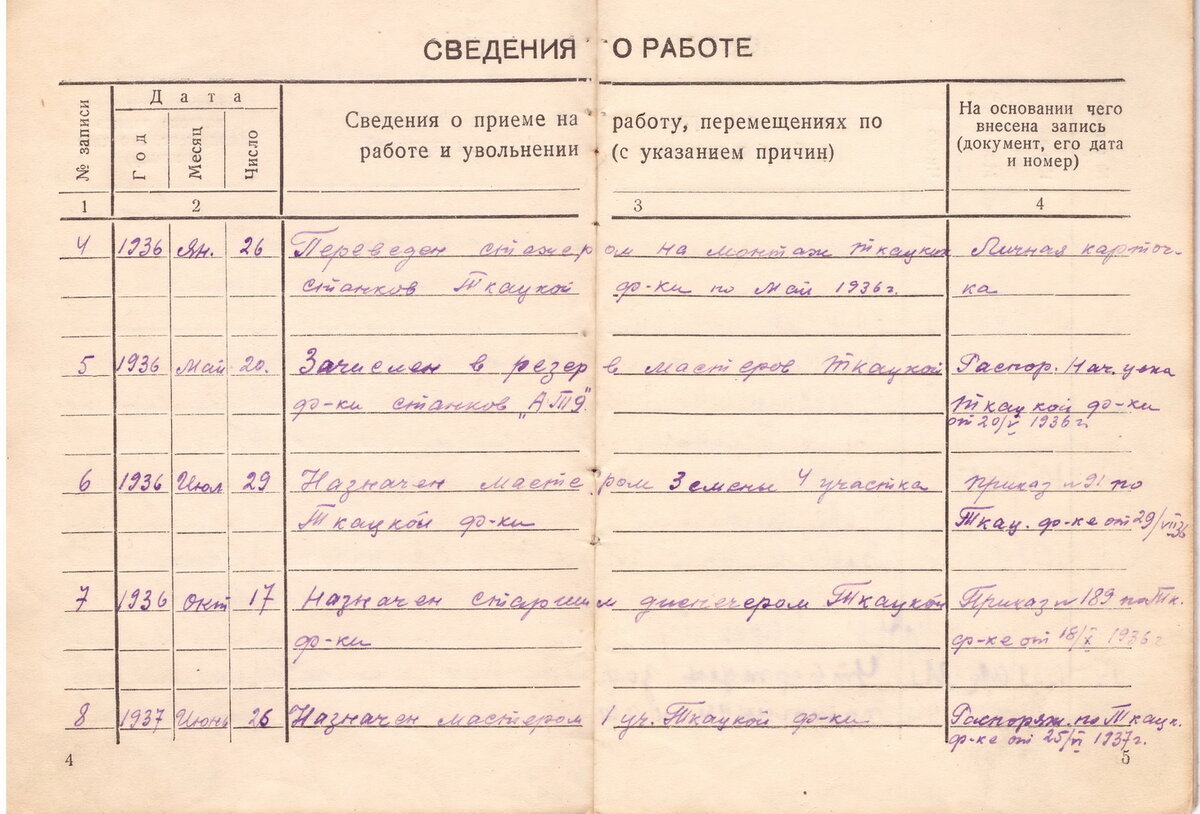 СВЕДЕНИЯ О РАБОТЕ
№ записи
Дата
Год
Месяц
Число
Сведения о приеме на работу, перемещениях по
работе и увольнении (с указанием причин)
На основании чего
внесена запись
(документ, его дата
и номер)
1 2 3 4
4 1936 Ян. 26 Переведен стажером на монтаж ткацких Личная карточ-
станков Ткацкой ф-ки по Май 1936 г. ка
5 1936 Май 20. Зачислен в резерв мастеров Ткацкой Распор. Нач. цеха
ф-ки станков „АТЯ". Ткацкой ф-ки
от 20/V 1936 г.
6 1936 Июл 29 Назначен мастером 3 смены 4 участка приказ № 91 по
Ткацкой ф-ки Ткац. ф-ке от 29/VII 36
7 1936 Окт 17 Назначен старшим диспечером Ткацкой Приказ № 189 по Тк.
ф-ки ф-ке от 18/X 1936 г
8 1937 Июнь 26 Назначен мастером 1 уч. Ткацкой ф-ки Распоряж. по Ткацк.
ф-ке от 25/VI 1937 г.
4 5